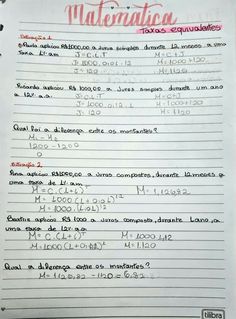 Matemática
Taxas equivalentes
Situação 1
Paulo aplicou R$1000,00 a juros simples durante 12 meses a uma
taxa 1% a.m J=C.i.T M=C+J
J=1000.0,01.12 M=1000+120
J=120 M=1.120
Ricardo aplicou R$ 1000,00 a Juros simples durante um ano
a 12% a.a J=C.i.T M=C+J
J=1000.0,12.1 M=1000+120
J=120 M=1.120
Qual foi a diferença entre os montantes?
M1-M2
1200-1200
0
Situação 2
aplicou R$1000,00 a Juros compostos, durante 12 meses a
uma taxa de 1% a.m
M=C.(1+i)T M=1.126,82
M=1000(1+0,01)12
M=1000.(1,01)12
Beatriz aplicou R$ 1000 a Juros composto, durante 1 ano, a
uma taxa de 12% a.a
M=C.(1+i)T M=1000.1,12
M=1000(1+0,12)1 M=1.120
Qual a diferença entre os montantes?
M=1.126,82-1120=6,82
tilibra